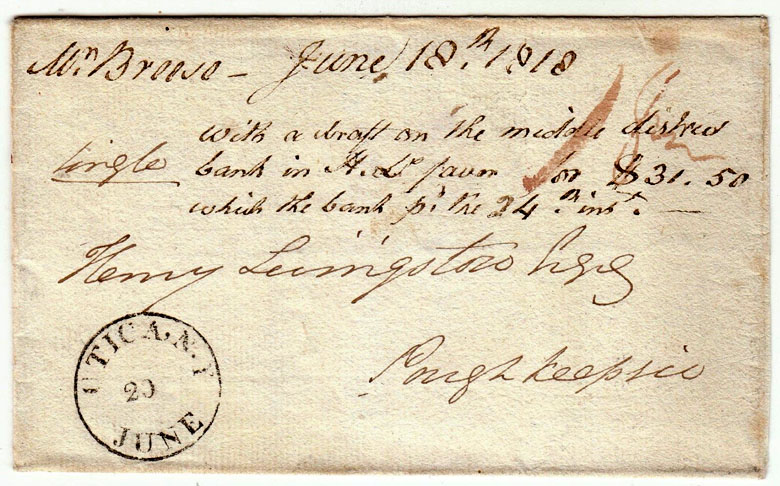 Mr. Breese – June 18th. 1818
with a draft on the middle district
single bank in H. Ls. favor for $31.50
which the bank pd. the 24th. inst. —
Henry Livingston Esqr
Poughkeepsie
UTICA. N.Y
20
JUNE